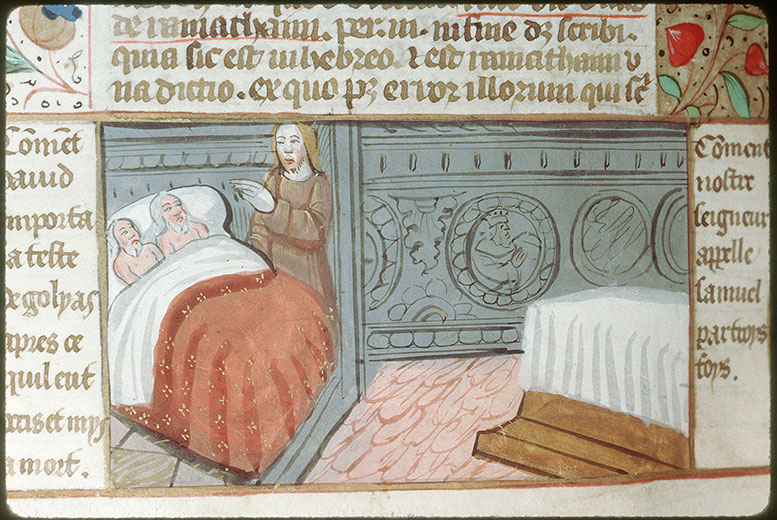 de ramathaim. per .m. in fine dz scribi.
quia sic est in hebreo. ⁊ est ramathaim v
na dictio. ex quo pz error illorum qui sc̄
Cōmēt
dauid
emporta
la teste
de golyas
apres ce
quil eut
occis et mys
a mort.
Cōment
nostre
seigneur
appelle
samuel
par troys
foys.